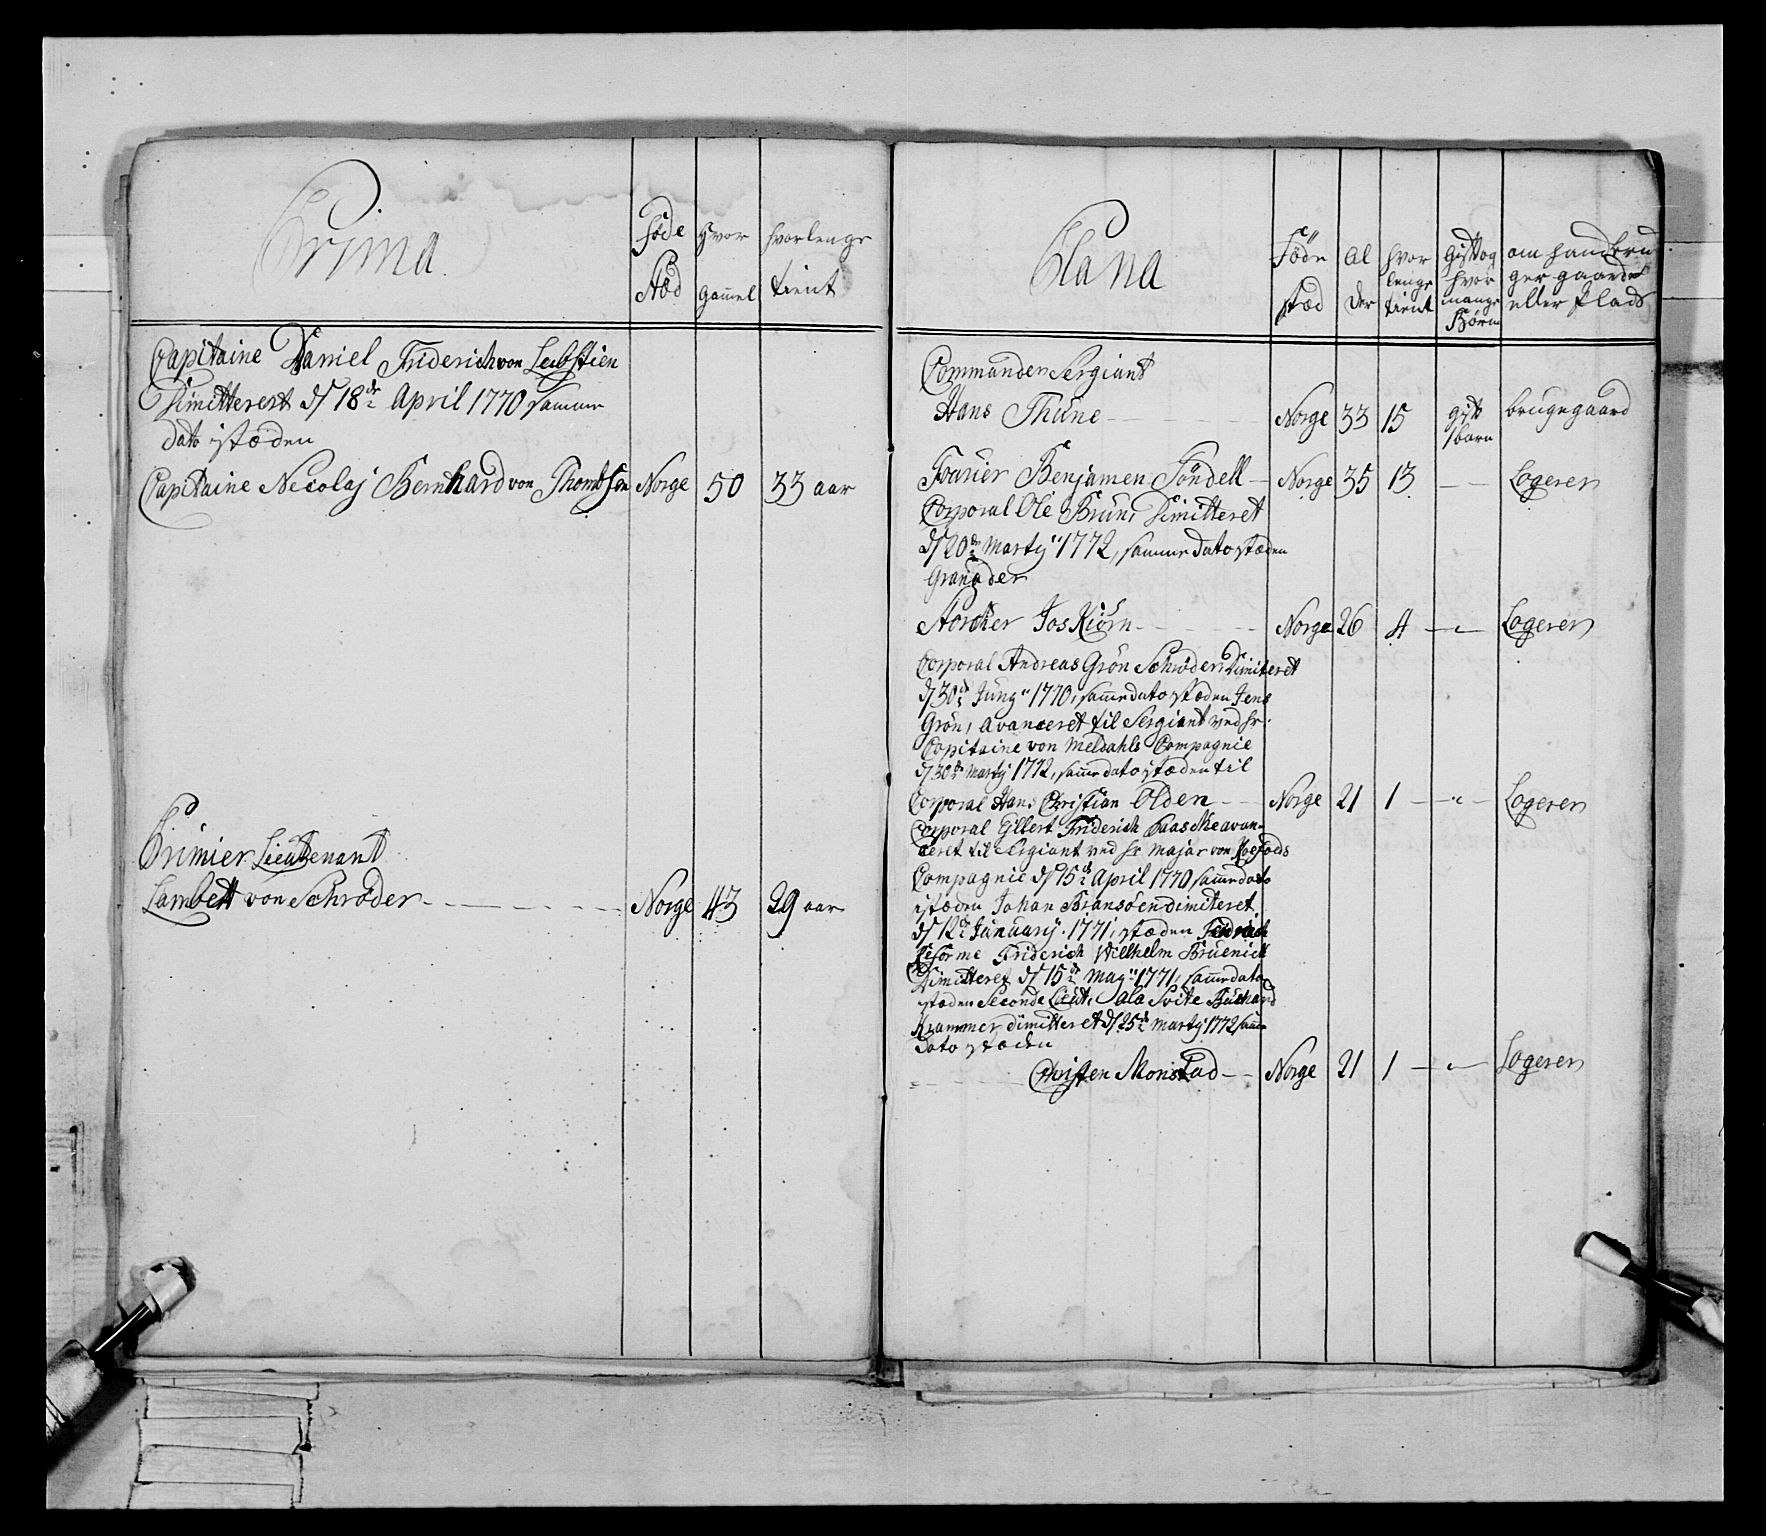 Prima
föde
Stæd
Hvor
gamel
hvorlenge
tient
Capitaine Daniel Friderich von Leibstien
Dimitterest d/ 18de April 1770 samme
dato istæden
Capitaine Necolaj Bernhard von Thombsen Norge 50 33 aar
Primier Lieutenant
Lambert von Schrøder Norge 43 29 aar
Plana
Föde
stæd
Al
der
hvor
lenge
tient
Gift og
hvor
mange
Börn
om hand bru
ger gaard
eller Plads
Commander Sergiant
Hans Thüne Norge 33 15 gift brugegaard
1 barn
Fourier Benjamen Töndell Norge 35 13 Logerer
Corporal Ole Brun, Dimitteret
d/ 20de Martij 1772, samme dato istæden
Granader
Storcker Jos Kiörn Norge 26 4 Logerer
Corporal Andreas Grön Schröder, Dimiteret
d/ 30de Junij 1770, samme dato istæden Jens
Grön, avanceret til Sergiant ved hr.
Capitaine von Meldahls Compagnie
d/ 30de Martij 1772, samme dato istæden til
Corporal Hans Christian Olden Norge 21 1 Logerer
Corporal Ellert Friderich Haaskie avan-
ceret til Sergiant ved hr Major von Koefods
Compagnie d/ 15de April 1770 samme dato
istæden Johan Bransöen dimiteret
d/ 12te Januarij 1771, istæden
Reforme Friderich Willhelm Bruenich
Dimitteret d/ 15de Maij 1771, samme dato
istæden Seconde Lieut. Ala Svite
Krammer dimitteret d/ 25de Martij 1772 samme
Dato istæden
Christen Monstad Norge 21 1 Logerer